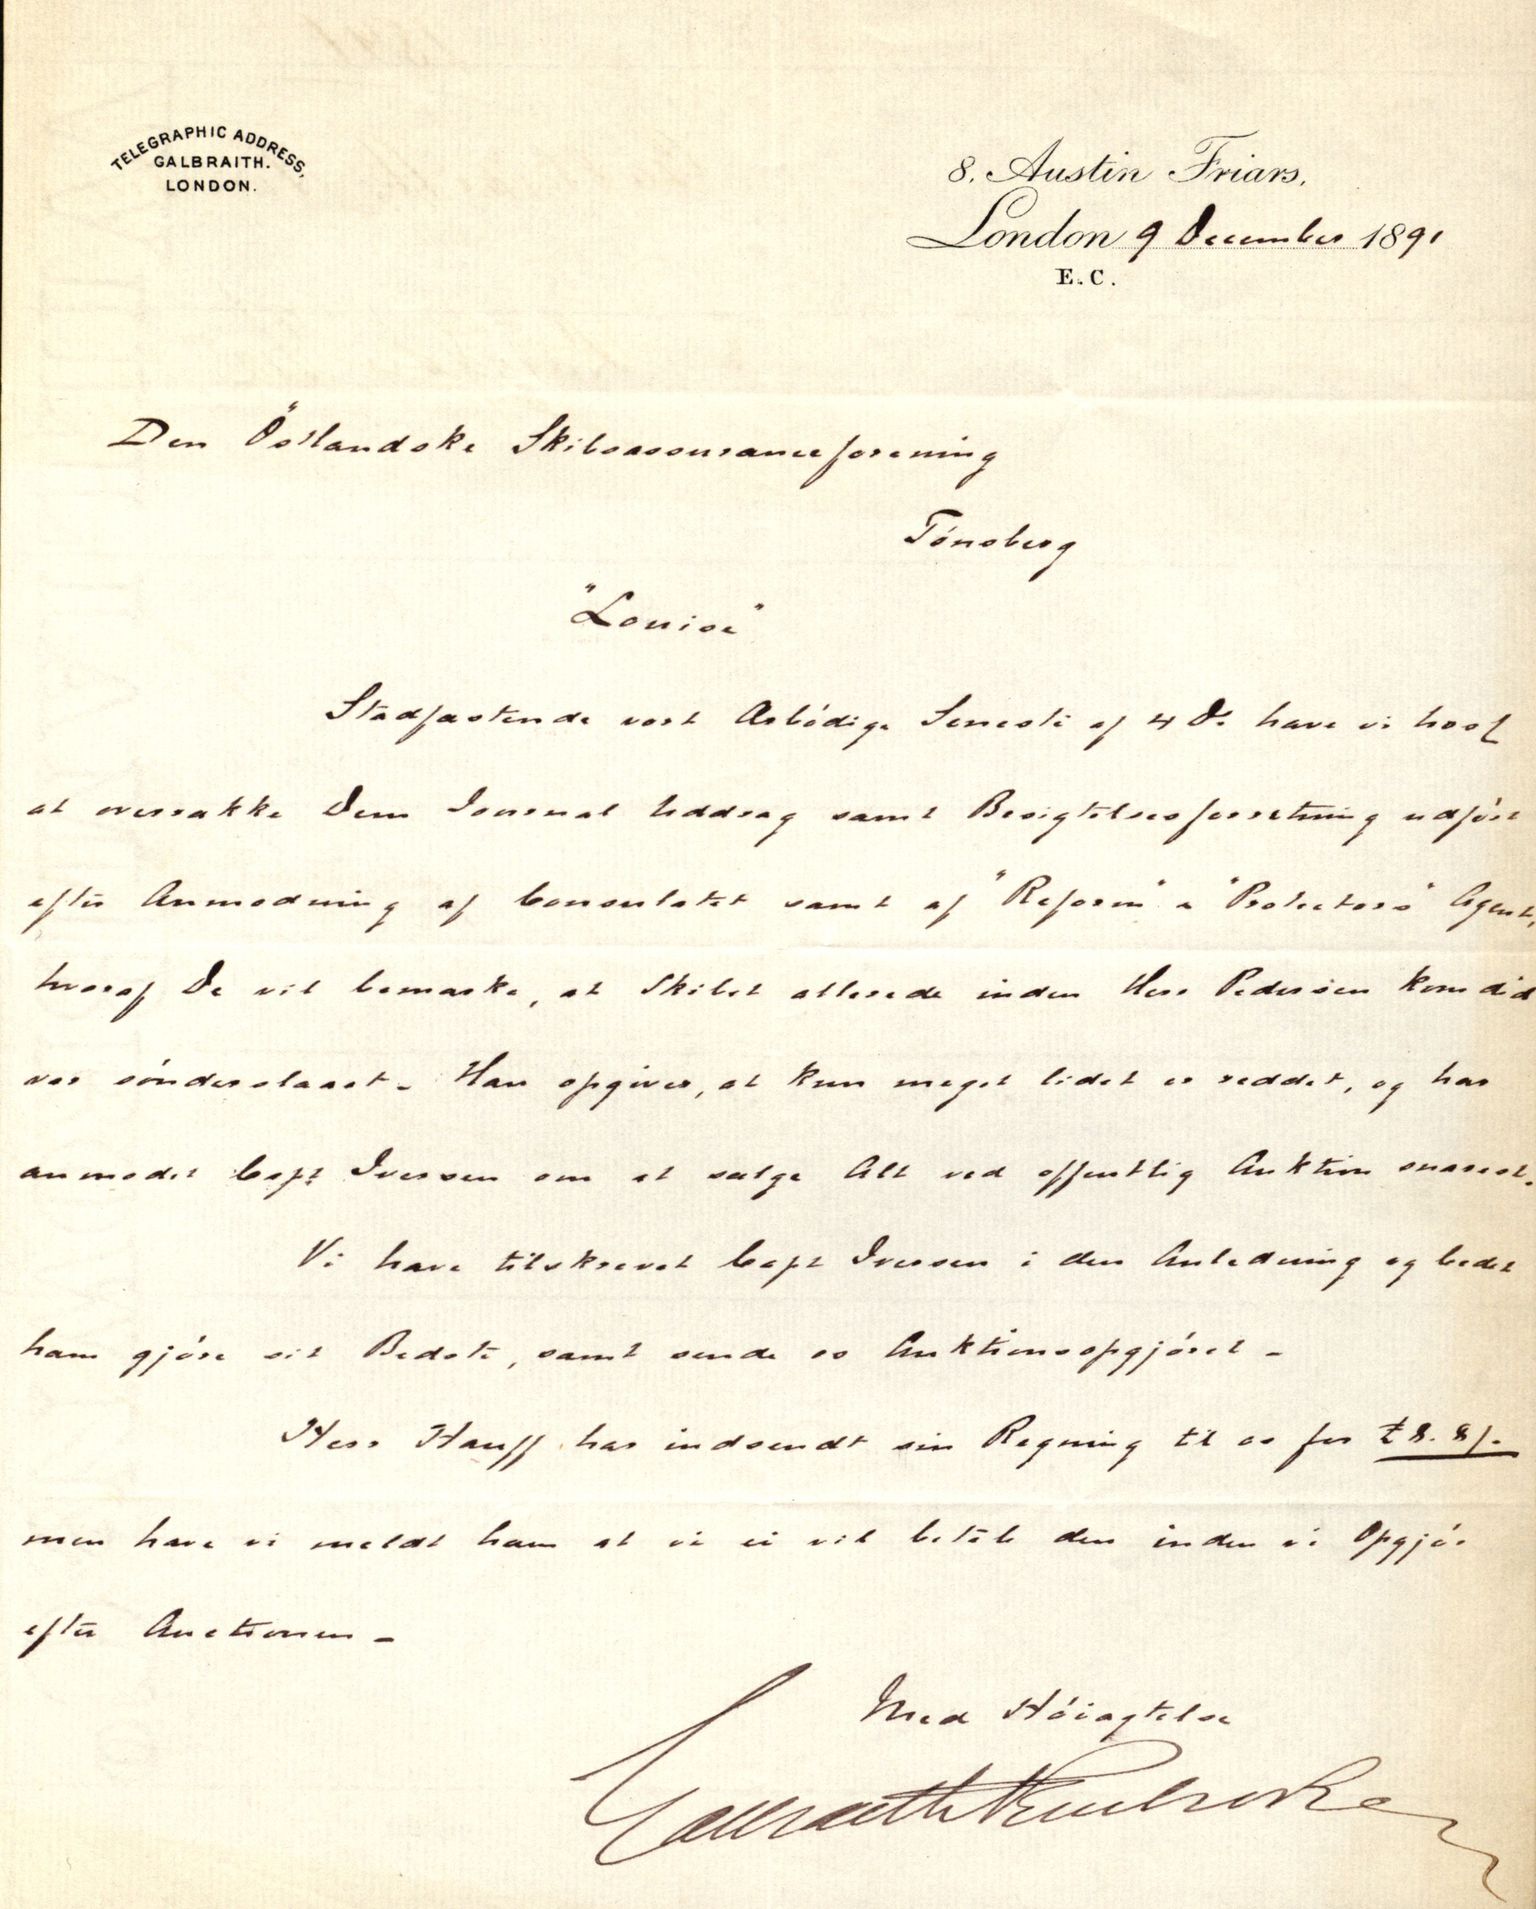 TELEGRAPHIC ADDRESS,
GALBRAITH.
LONDON.
8, Austin Friars,
London 9 December 1891
E.C.
Den Östlandske Skibsassuranceforening
Tönsberg
"Louise"
Stadfæstende vort Ærbödige Seneste af 4 Ds have vi hosl
at overrække Dem Journal Uddrag samt Besigtelsesforretning udfört
efter Anmodning af Consulatet samt af "Reform" & "Protectors" Agent,
hvoraf De vil bemærke, at Skibet allerede inden Herr Pedersen kom did
var sönderslaaet - Han opgiver, at kun meget lidet er reddet, og har
anmodet Capt Iversen om at sælge Alt ved offentlig Auktion snarest.
Vi have tilskrevet Capt Iversen i den Anledning og bedet
ham gjöre sit Bedste, samt sende os Auktionsopgjöret -
Herr Hauff har indsendt sin Regning til os for £8. 8/-
men have vi meldt ham at vi ei vil betale den inden vi Opgjör
efter Auctionen -
Med Höiagtelse
Galbraith Pembroke